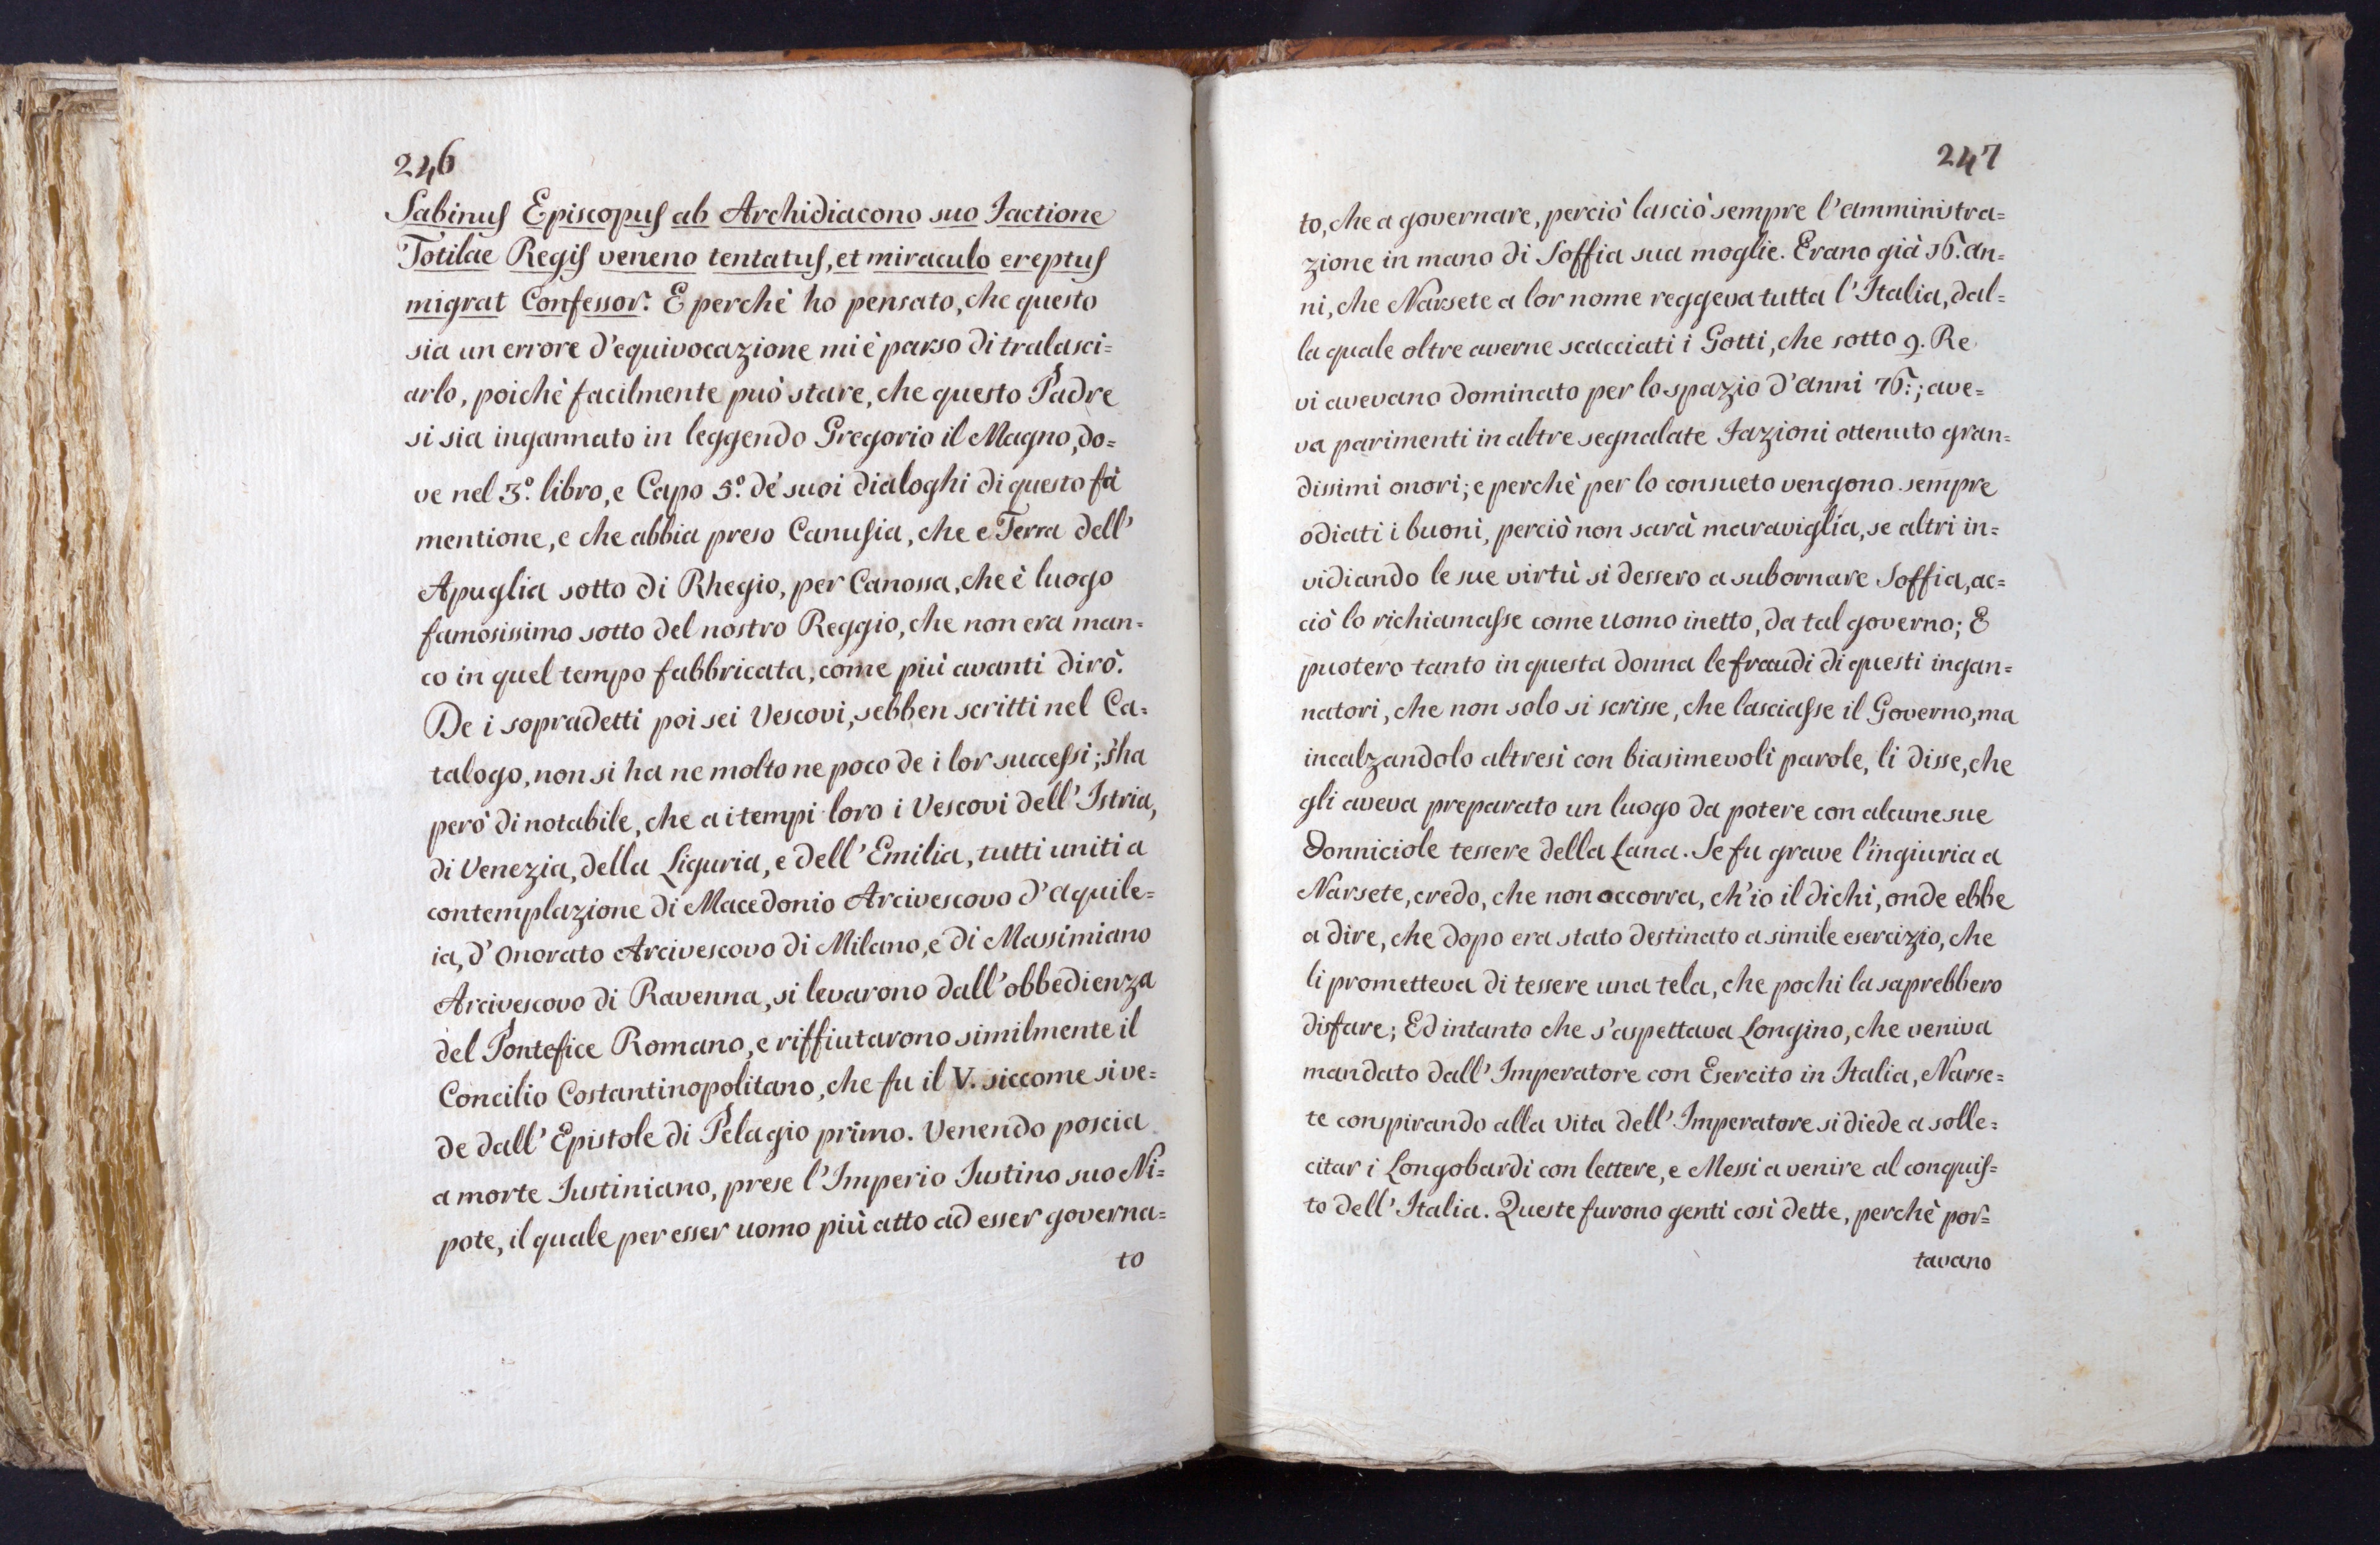 246
Sabinus Episcopus ab Archidiacono suo Factione
Totilae Regis veneno tentatus, et miraculo ereptus
migrat Confessor. E perchè ho pensato, che questo
sia un errore d'equivocazione mi è parso di tralasci=
arlo, poichè facilmente può stare, che questo Padre
si sia ingannato in leggendo Gregorio il Magno, do=
ve nel 3.º libro, e Capo 5.º de' suoi dialoghi di questo fà
mentione, e che abbia preso Canusia, che e Terra dell'
Apuglia sotto di Rhegio, per Canossa, che è luogo
famosissimo sotto del nostro Reggio, che non era man=
co in quel tempo fabbricata, come più avanti dirò.
De i sopradetti poi sei Vescovi, sebben scritti nel Ca=
talogo, non si ha ne molto ne poco de i lor successi; s'ha
però di notabile, che a i tempi loro i Vescovi dell'Istria,
di Venezia, della Liguria, e dell'Emilia, tutti uniti a
contemplazione di Macedonio Arcivescovo d'aquile=
ia, d'Onorato Arcivescovo di Milano, e di Massimiano
Arcivescovo di Ravenna, si levarono dall'obbedienza
del Pontefice Romano, e riffiutarono similmente il
Concilio Costantinopolitano, che fu il V. siccome si ve=
de dall'Epistole di Pelagio primo. Venendo poscia
a morte Iustiniano, prese l'Imperio Iustino suo Ni=
pote, il quale per esser uomo più atto ad esser governa=
to
247
to, che a governare, perciò lasciò sempre l'amministra=
zione in mano di Soffia sua moglie. Erano già 16. an=
ni, che Narsete a lor nome reggeva tutta l'Italia, dal=
la quale oltre averne scacciati i Gotti, che sotto 9. Re
vi avevano dominato per lo spazio d'anni 76.; ave=
va parimenti in altre segnalate Fazioni ottenuto gran=
dissimi onori; e perchè per lo consueto vengono sempre
odiati i buoni, perciò non sarà maraviglia, se altri in=
vidiando le sue virtù si dessero a subornare Soffia, ac=
ciò lo richiamasse come uomo inetto, da tal governo; E
puotero tanto in questa donna le fraudi di questi ingan=
natori, che non solo si scrisse, che lasciasse il Governo, ma
incalzandolo altresì con biasimevoli parole, li disse, che
gli aveva preparato un luogo da potere con alcune sue
Donniciole tessere della Lana. Se fu grave l'ingiuria a
Narsete, credo, che non occorra, ch'io il dichi, onde ebbe
a dire, che dopo era stato destinato a simile esercizio, che
li prometteva di tessere una tela, che pochi la saprebbero
disfare; Ed intanto che s'aspettava Longino, che veniva
mandato dall'Imperatore con Esercito in Italia, Narse=
te conspirando alla vita dell'Imperatore si diede a solle=
citar i Longobardi con lettere, e Messi a venire al conquis=
to dell'Italia. Queste furono genti così dette, perchè por=
tavano